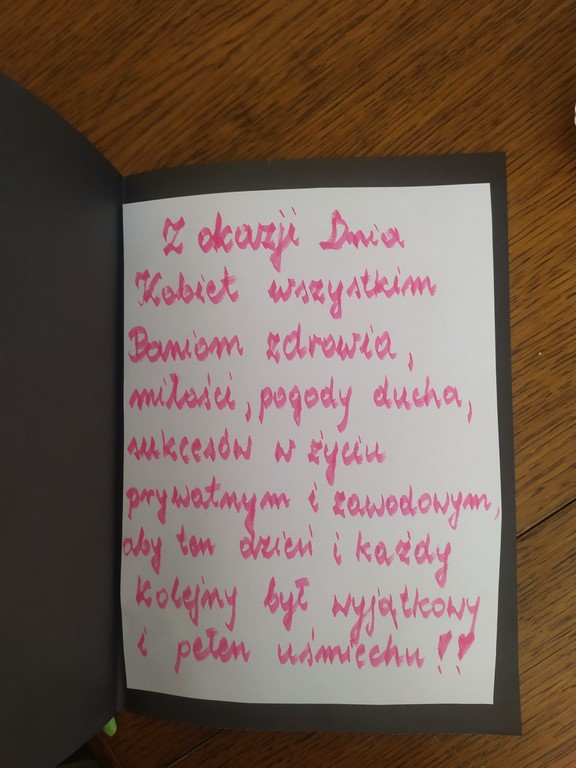 Z okazji Dnia
Kobiet wszystkim
Paniom zdrowia,
miłości, pogody ducha,
sukcesów w życiu
prywatnym i zawodowym,
aby ten dzień i każdy
kolejny był wyjątkowy
i pełen uśmiechu!!